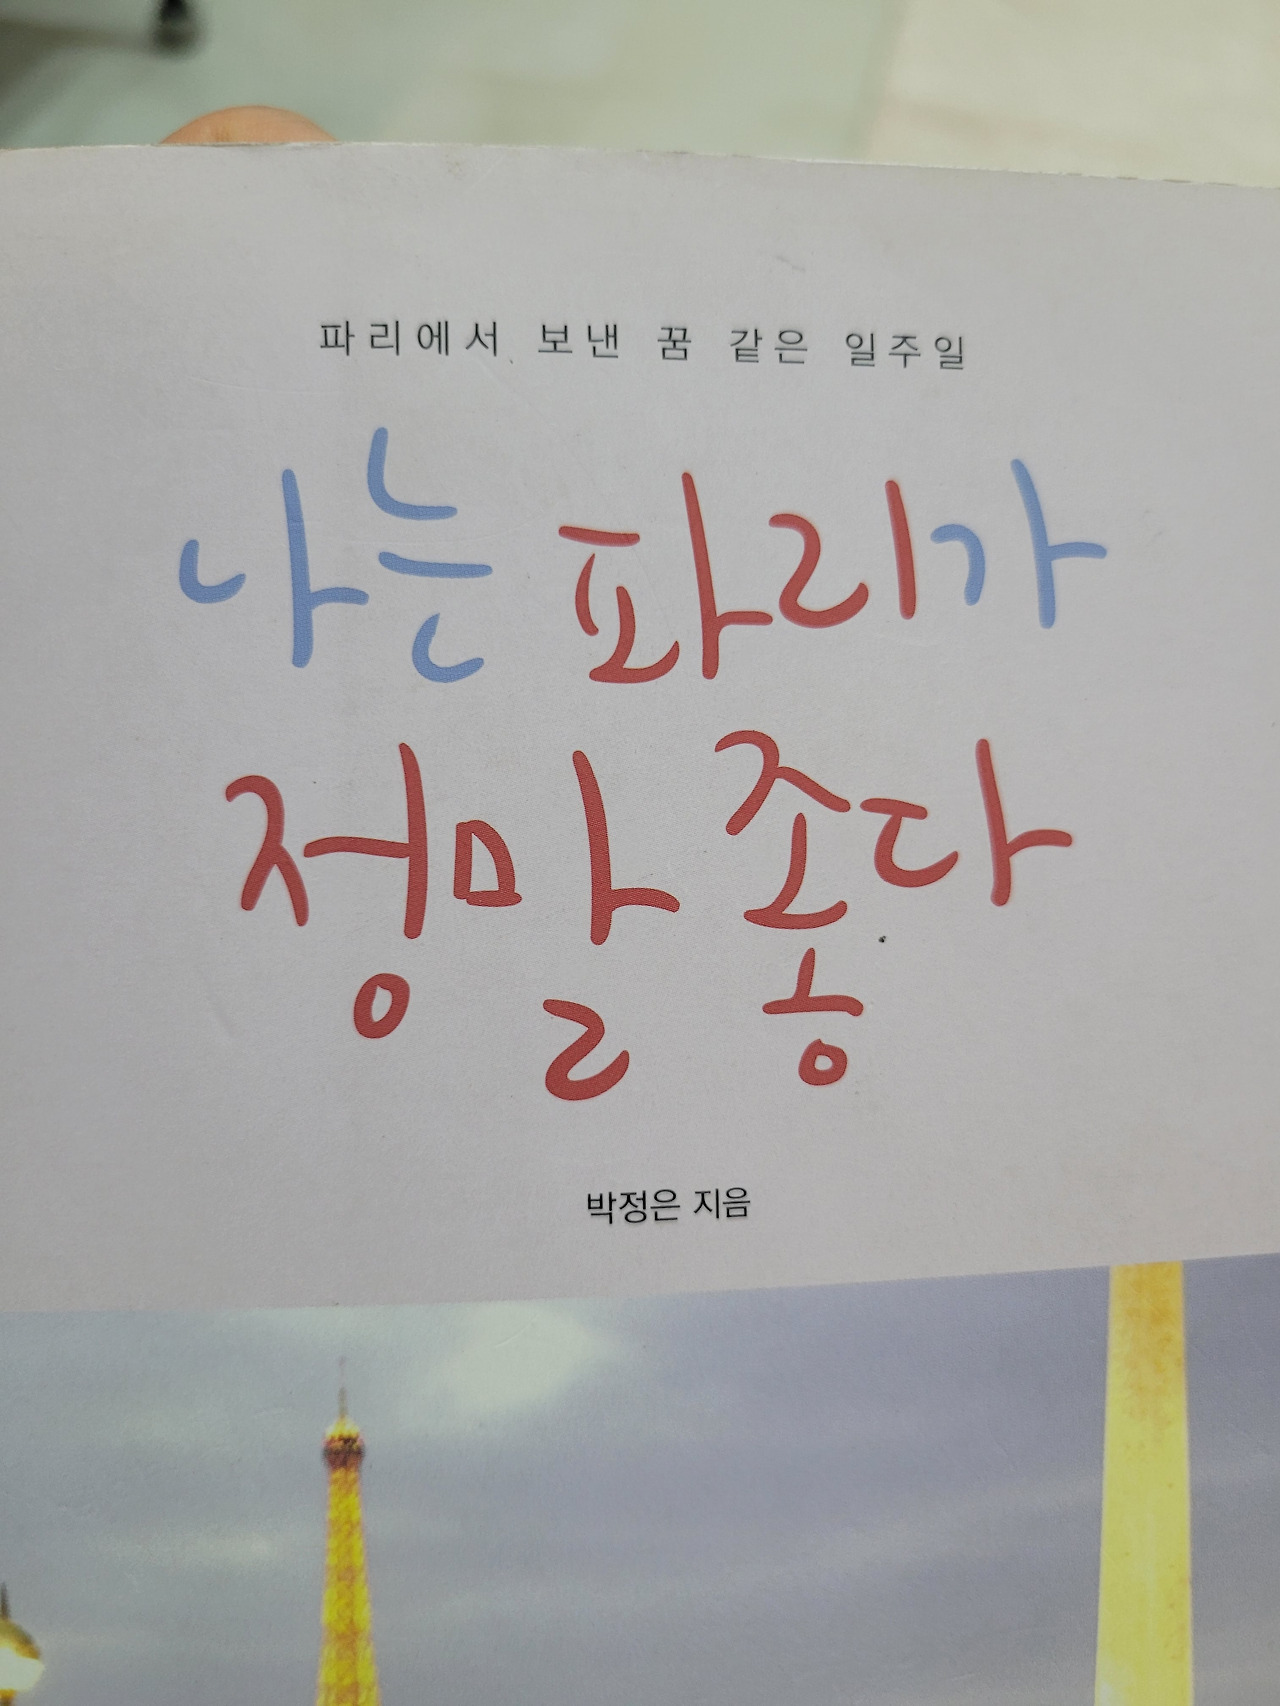 파리에서 보낸 꿈 같은 일주일
나는 파리가
정말 좋다
박정은 지음